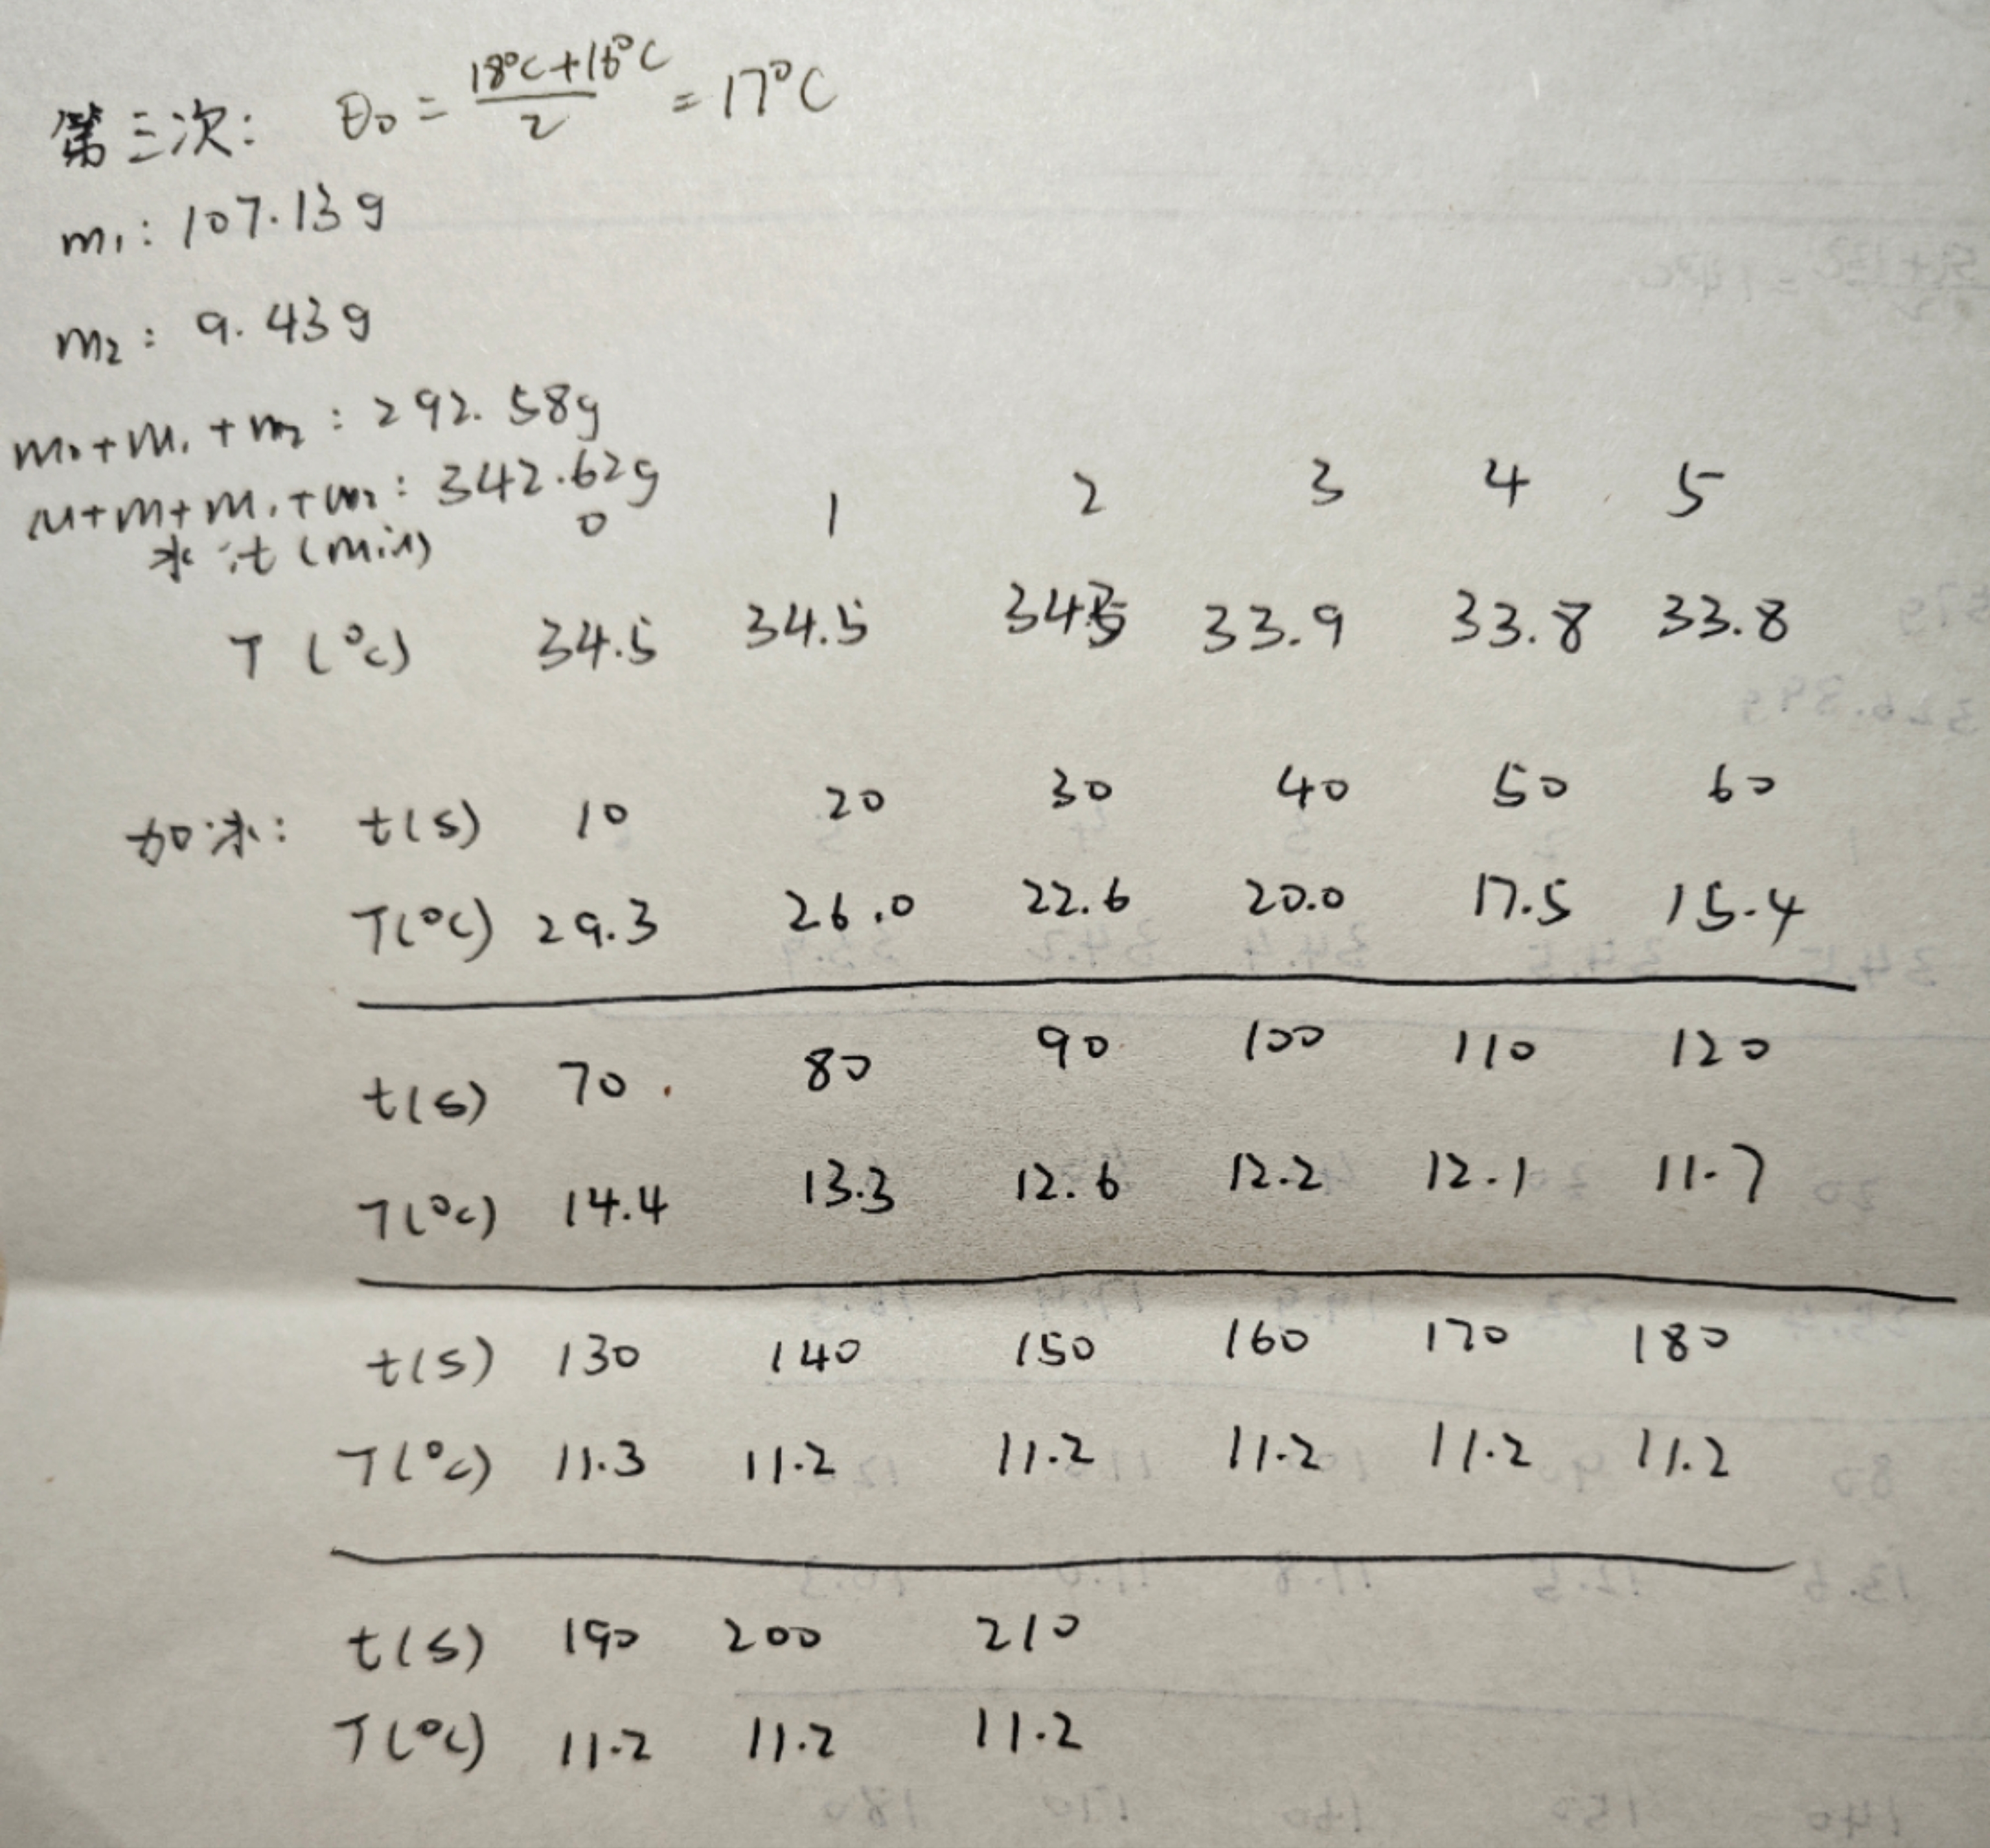 第三次: θ₀ = (18°C+16°C)/2 = 17°C
m₁: 107.13g
m₂: 9.43g
m₀+m₁+m₂: 292.58g
M+m+m₁+m₂: 342.62g
水: t(min) 0 1 2 3 4 5
T(°C) 34.5 34.5 33.9 33.8 33.8
加冰: t(s) 10 20 30 40 50 60
T(°C) 29.3 26.0 22.6 20.0 17.5 15.4
t(s) 70 80 90 100 110 120
T(°C) 14.4 13.3 12.6 12.2 12.1 11.7
t(s) 130 140 150 160 170 180
T(°C) 11.3 11.2 11.2 11.2 11.2 11.2
t(s) 190 200 210
T(°C) 11.2 11.2 11.2